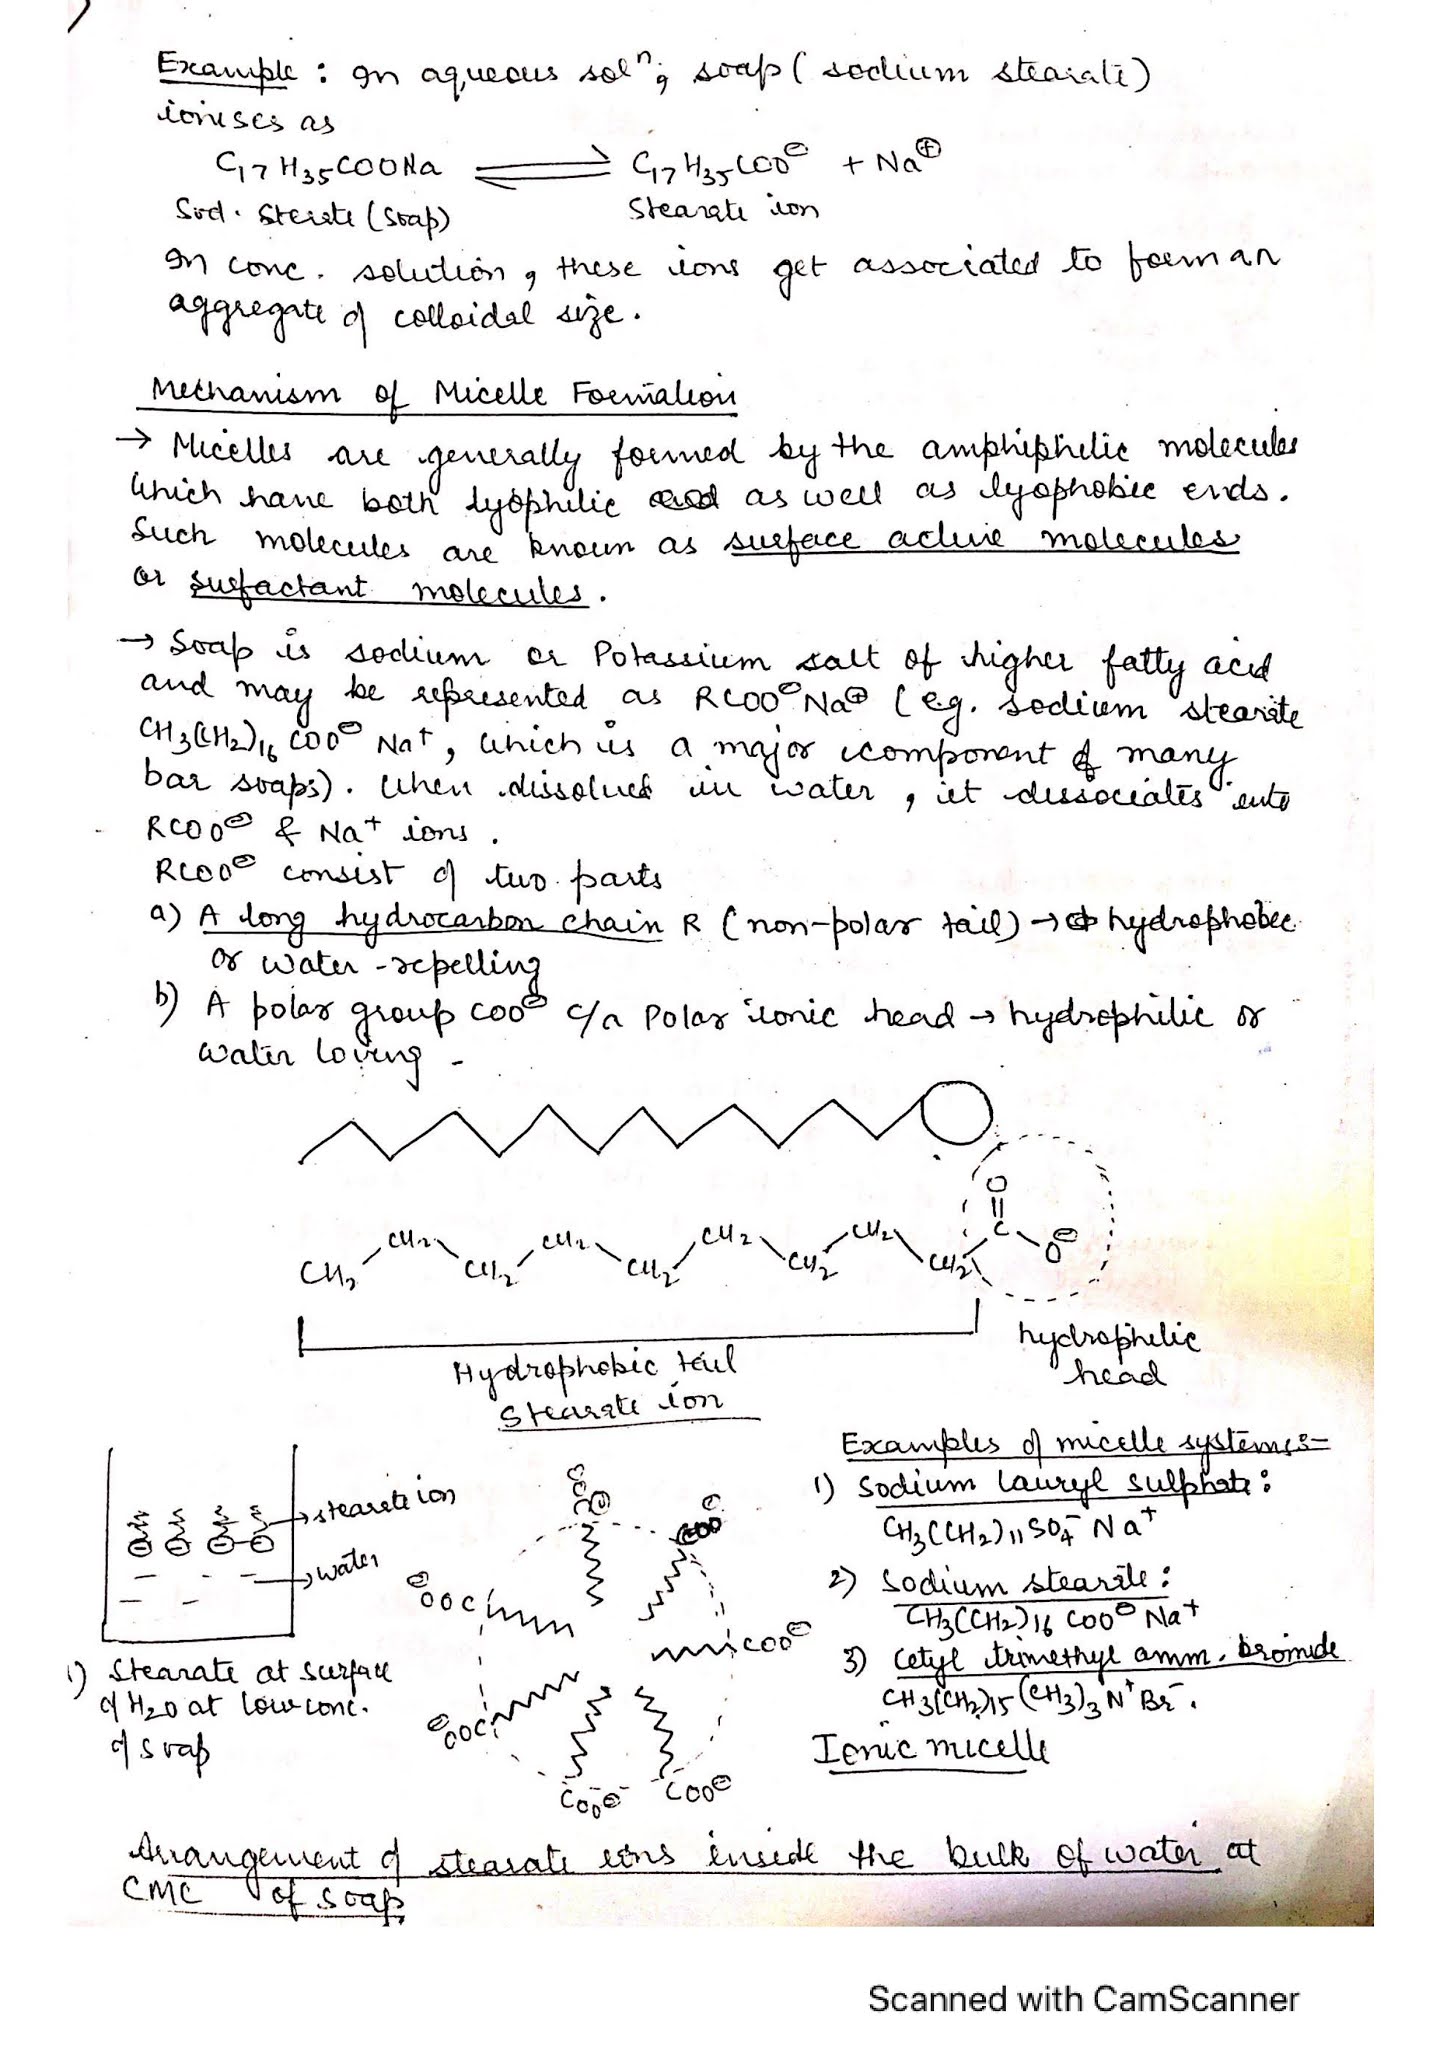 Example : In aqueous solⁿ, soap ( sodium stearate)
ionises as
C₁₇H₃₅COONa ⇌ C₁₇H₃₅COO⊖ + Na⊕
Sod. Sterate (soap) Stearate ion
In conc. solution, these ions get associated to form an
aggregate of colloidal size.
Mechanism of Micelle Formation
→ Micelles are generally formed by the amphiphilic molecules
which have both lyophilic as well as lyophobic ends.
Such molecules are known as surface active molecules
or surfactant molecules.
→ Soap is sodium or Potassium salt of higher fatty acid
and may be represented as RCOO⊖Na⊕ (eg. sodium stearate
CH₃(CH₂)₁₆COO⊖ Na⁺, which is a major component of many
bar soaps). When dissolved in water, it dissociates into
RCOO⊖ & Na⁺ ions.
RCOO⊖ consist of two parts
a) A long hydrocarbon chain R (non-polar tail) → hydrophobic
or water-repelling
b) A polar group COO⊖ c/a Polar ionic head → hydrophilic or
water loving -
O
||
CH₂ CH₂ CH₂ CH₂ C O⊖
CH₂ CH₂ CH₂ CH₂ CH₂
hydrophilic
head
Hydrophobic tail
Stearate ion
stearate ion
water
1) Stearate at surface
of H₂O at low conc.
of soap
COO⊖
COO⊖
⊖OOC
COO⊖
⊖OOC
COO⊖
COO⊖
Examples of micelle systems:-
1) Sodium Lauryl sulphate:
CH₃(CH₂)₁₁SO₄⁻ Na⁺
2) Sodium stearate:
CH₃(CH₂)₁₆COO⊖ Na⁺
3) Cetyl trimethyl amm. bromide
CH₃(CH₂)₁₅(CH₃)₃N⁺Br⁻.
Ionic micelle
Arrangement of stearate ions inside the bulk of water at
CMC of soap
Scanned with CamScanner